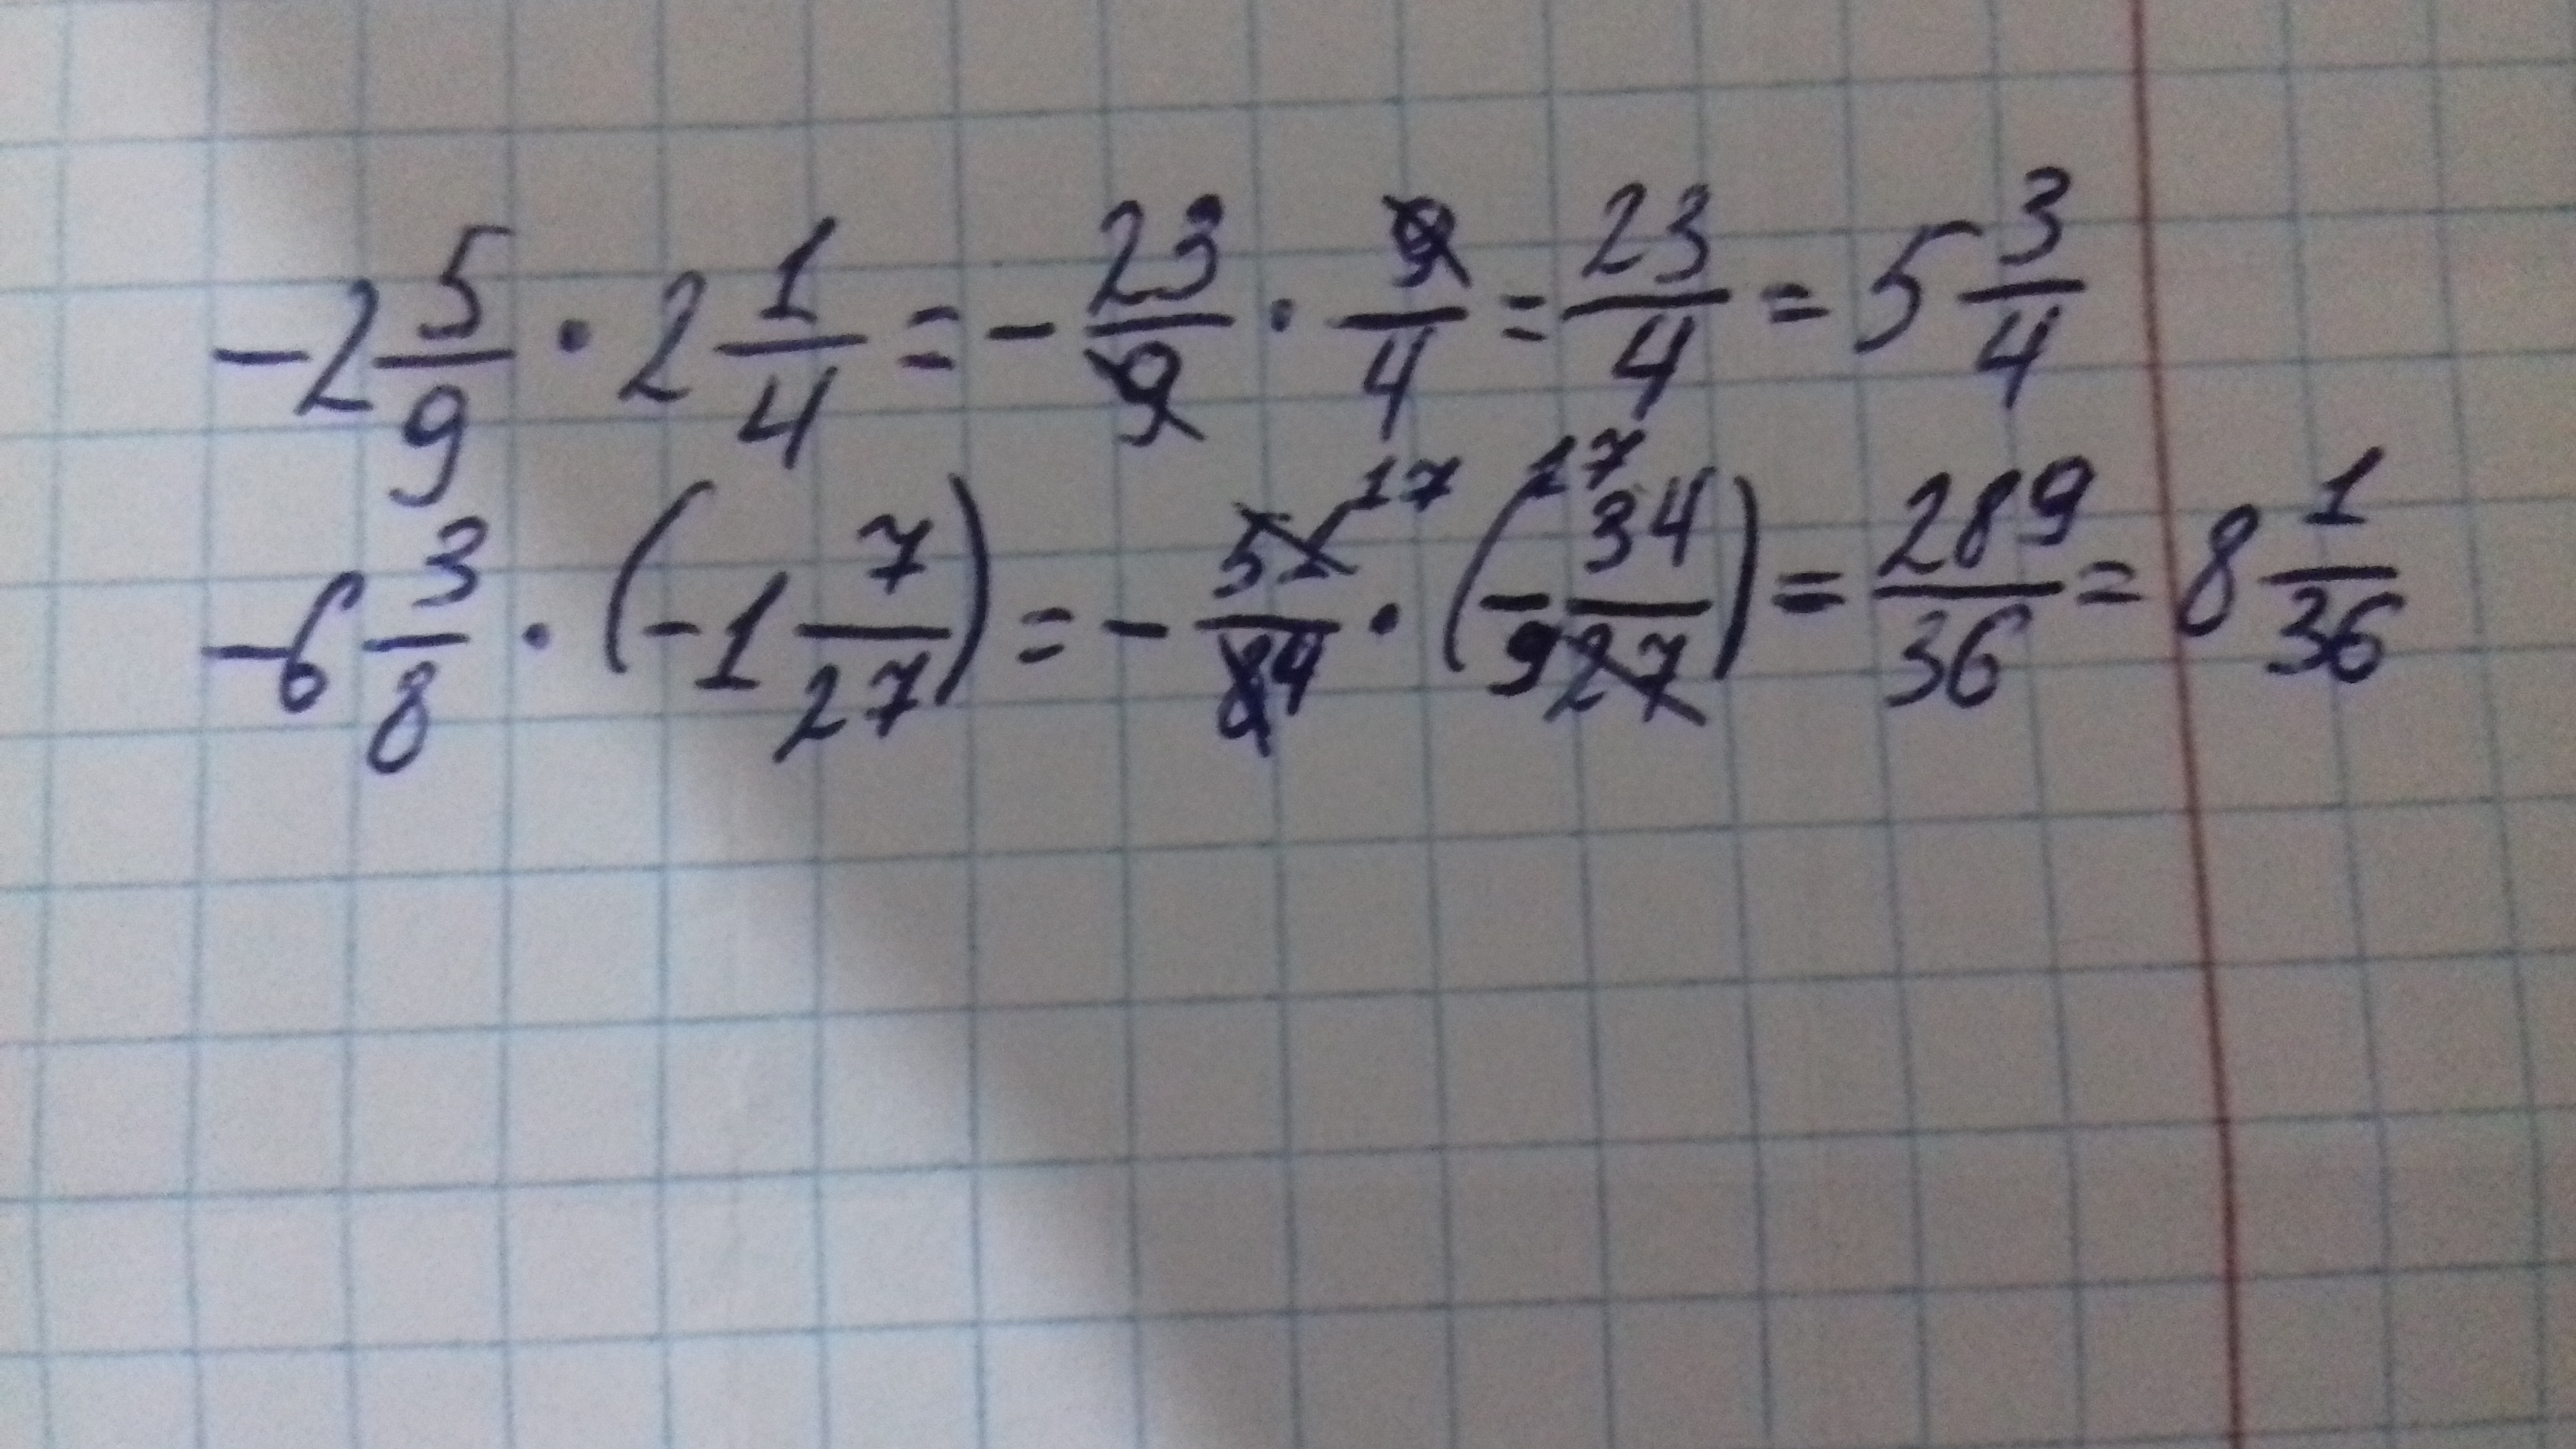 -2 5/9 · 2 1/4 = - 23/9 · 9/4 = 23/4 = 5 3/4
-6 3/8 · (-1 7/27) = - 51 17/8 4 · (- 17 34/9 27) = 289/36 = 8 1/36